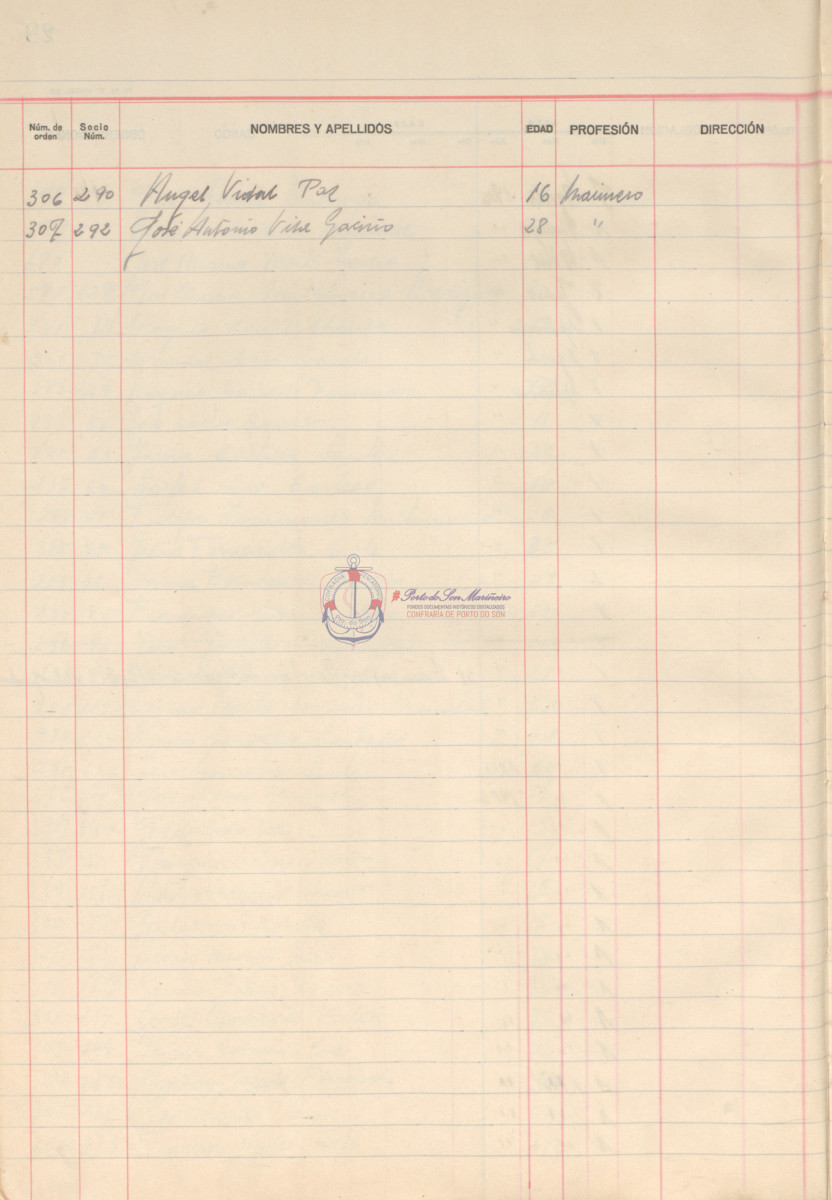 Núm. de orden Socio Núm. NOMBRES Y APELLIDOS EDAD PROFESIÓN DIRECCIÓN
306 290 Angel Vidal Paz 16 Marinero
307 292 José Antonio Vila 28 "
COFRADIA
#Porto do Son Mariñeiro
FONDOS DOCUMENTAIS HISTÓRICOS DIXITALIZADOS
CONFRARÍA DE PORTO DO SON